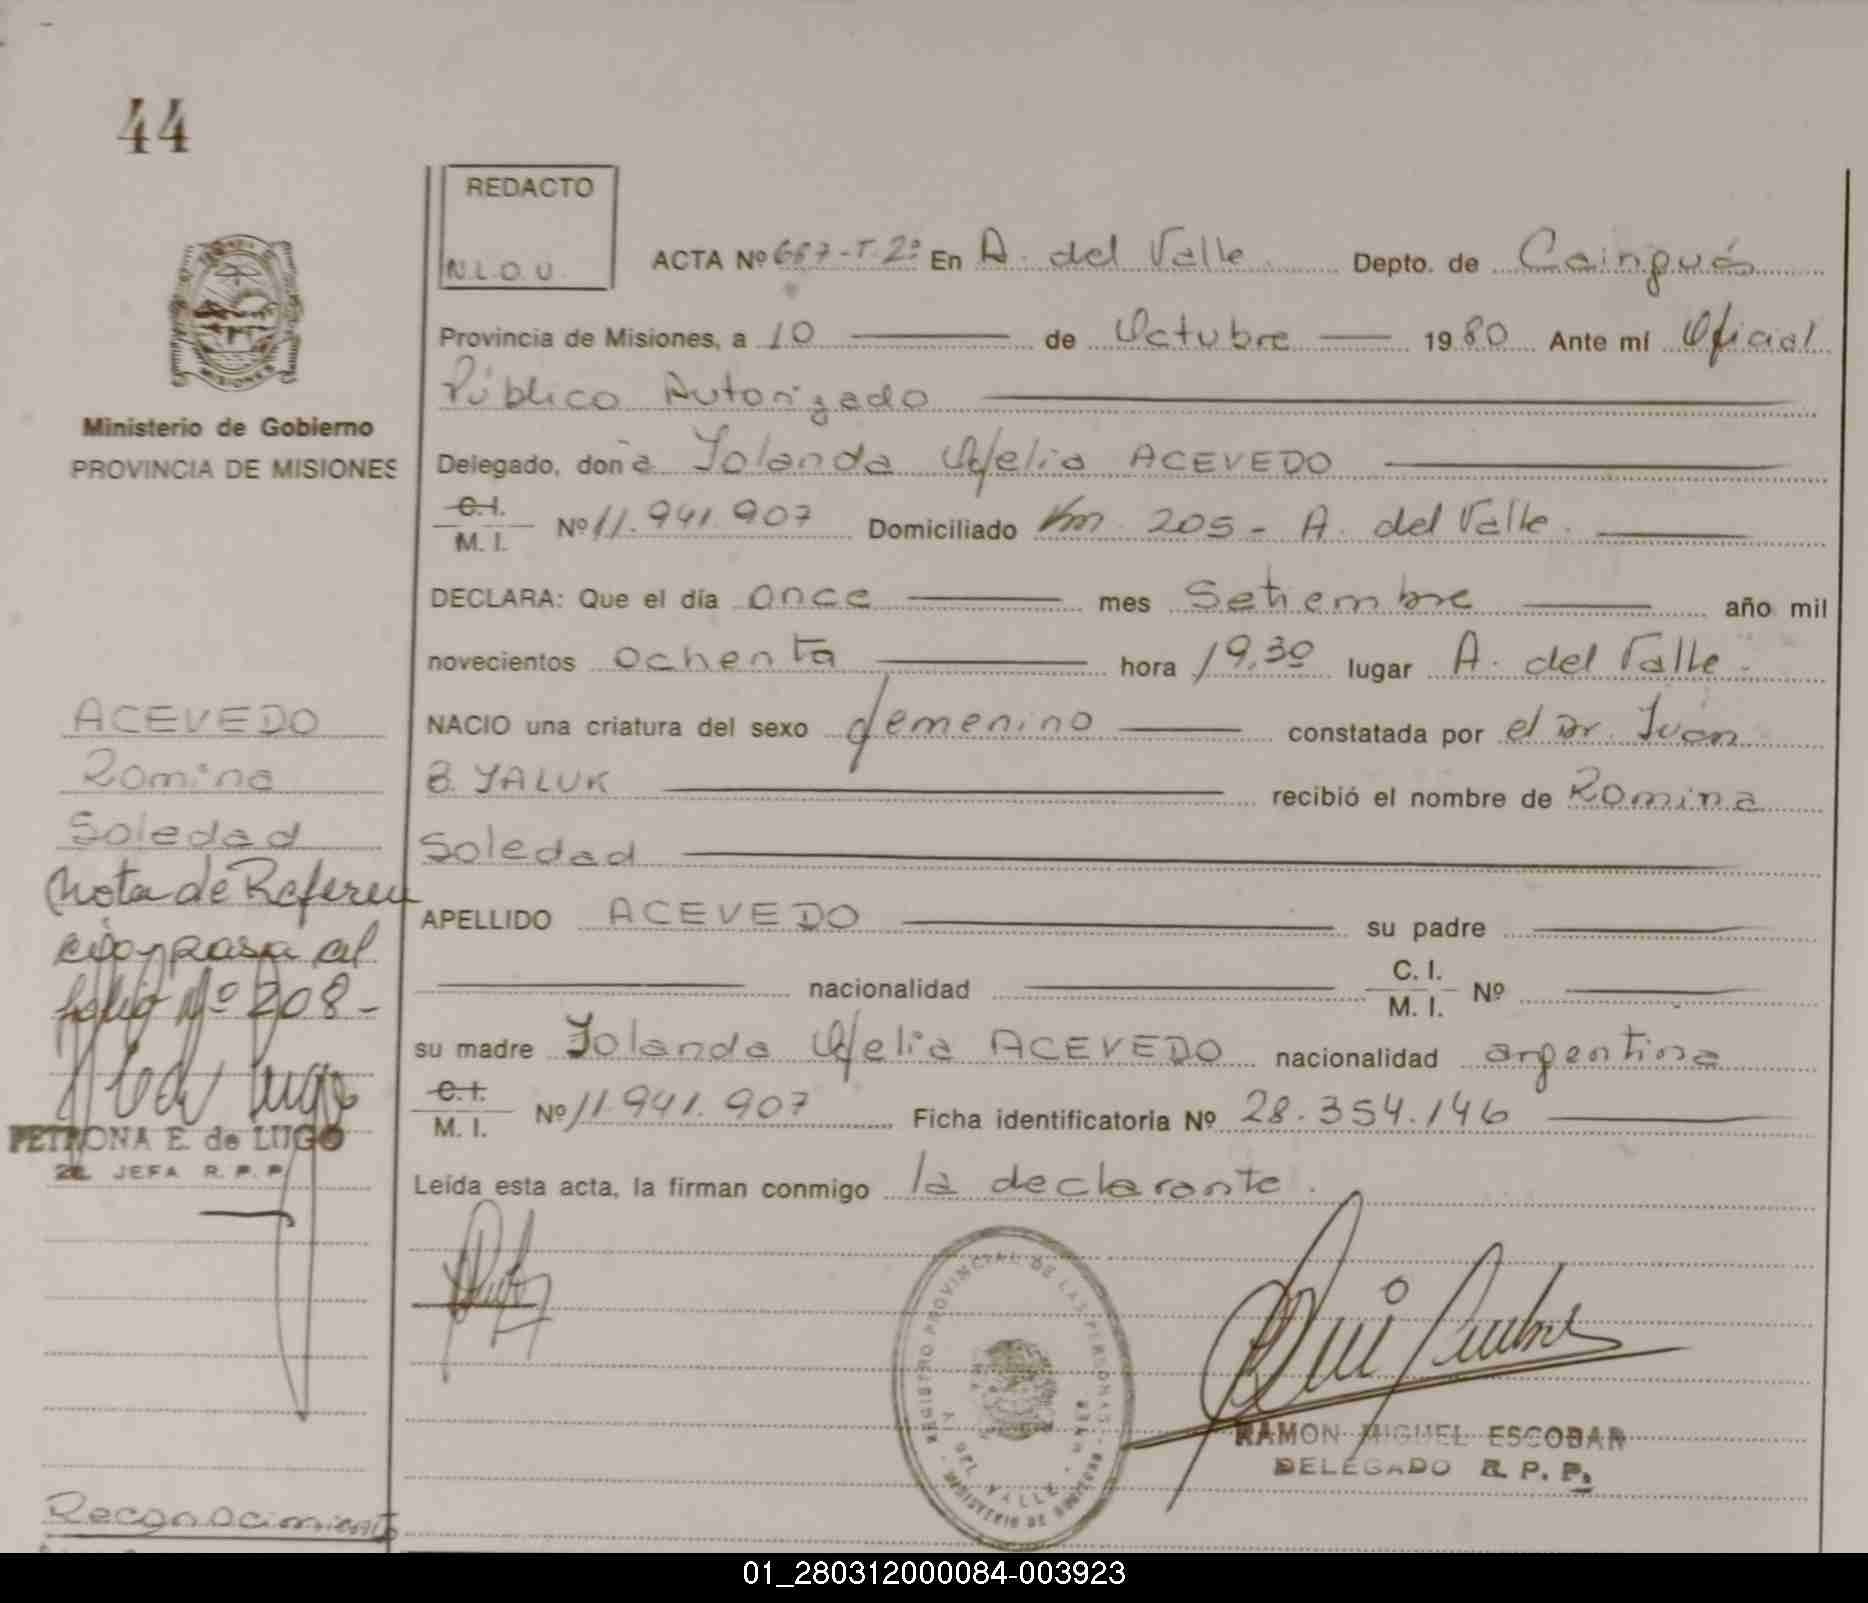 44
REDACTO
N.L.O.U.
ACTA Nº 667-T.2º En A. del Valle Depto. de Cainguás
Provincia de Misiones, a 10 de Octubre 1980 Ante mí Oficial
Público Autorizado
Ministerio de Gobierno
PROVINCIA DE MISIONES
MISIONES
Delegado, doña Yolanda Ofelia ACEVEDO
C.I.
M. I. Nº 11.941.907 Domiciliado Km. 205 - A. del Valle.
DECLARA: Que el día once mes Setiembre año mil
novecientos ochenta hora 19,30 lugar A. del Valle.
NACIO una criatura del sexo femenino constatada por el Dr. Iván
B. YALUK recibió el nombre de Romina
Soledad
APELLIDO ACEVEDO su padre
nacionalidad C. I.
M. I. Nº
su madre Yolanda Ofelia ACEVEDO nacionalidad argentina
C.I.
M. I. Nº 11.941.907 Ficha identificatoria Nº 28.354.146
Leída esta acta, la firman conmigo la declarante.
ACEVEDO
Romina
Soledad
Nota de Referen
cia y pasa al
folio Nº 208-
PETRONA E. de LUGO
2a. JEFA R. P. P.
REGISTRO PROVINCIAL DE LAS PERSONAS
DEL VALLE
RAMON MIGUEL ESCOBAR
DELEGADO R. P. P.
Reconocimiento
01_280312000084-003923